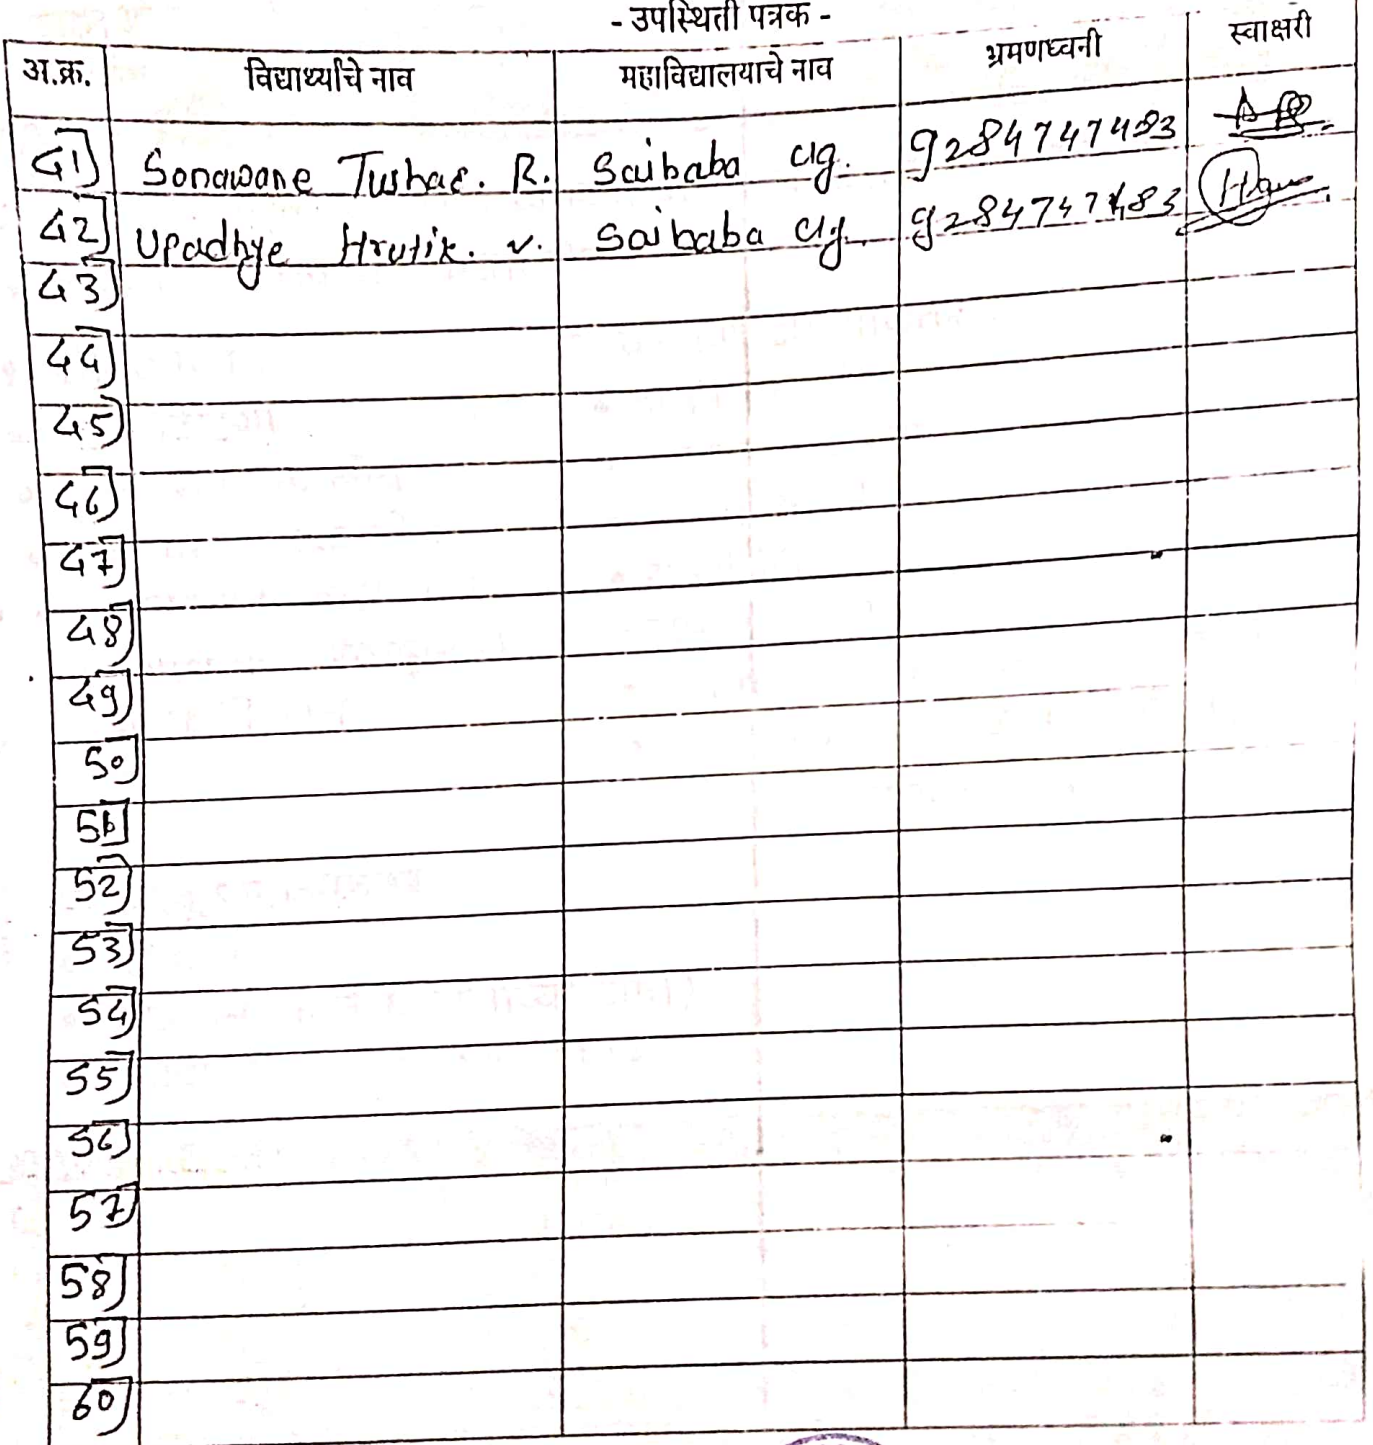 - उपस्थिती पत्रक -
अ.क्र. विद्यार्थ्यांचे नाव महाविद्यालयाचे नाव भ्रमणध्वनी स्वाक्षरी
41) Sonawane Tushar. R. Saibaba clg. 9284747483
42) Upadhye Hrutik. v. Saibaba clg. 9284747483
43)
44)
45)
46)
47)
48)
49)
50)
51)
52)
53)
54)
55)
56)
57)
58)
59)
60)